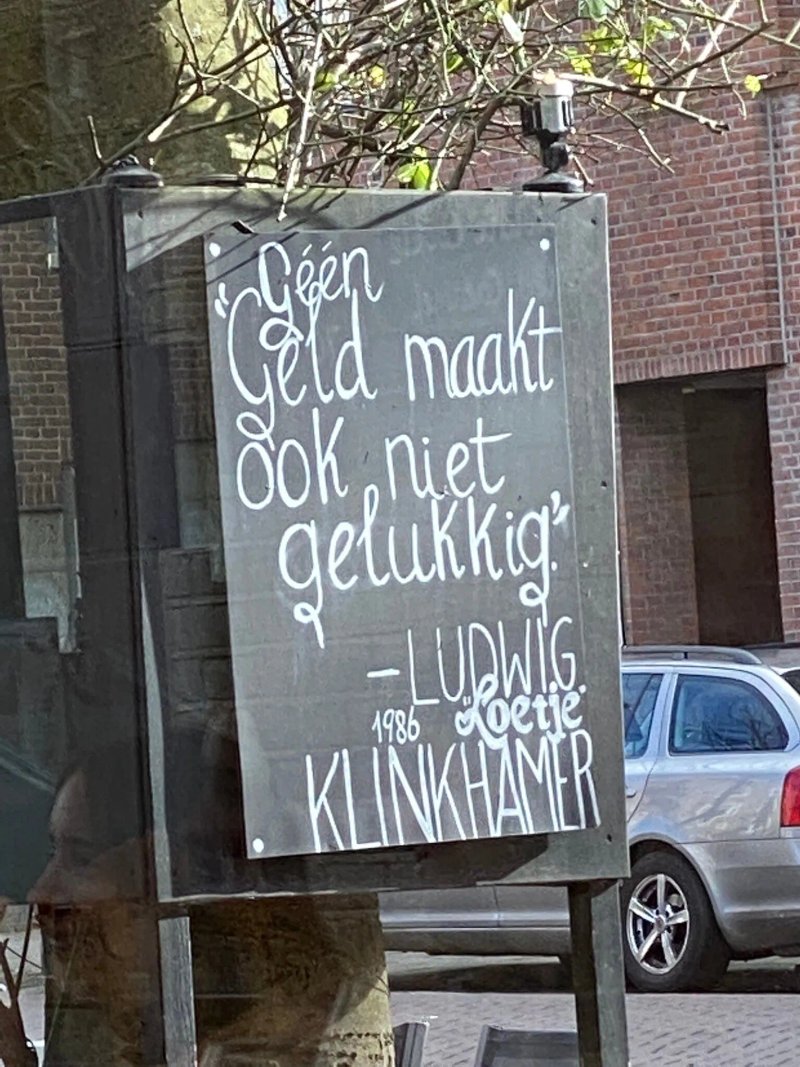 "Géén
Geld maakt
ook niet
gelukkig."
– LUDWIG
1986 "Loetje"
KLINKHAMER